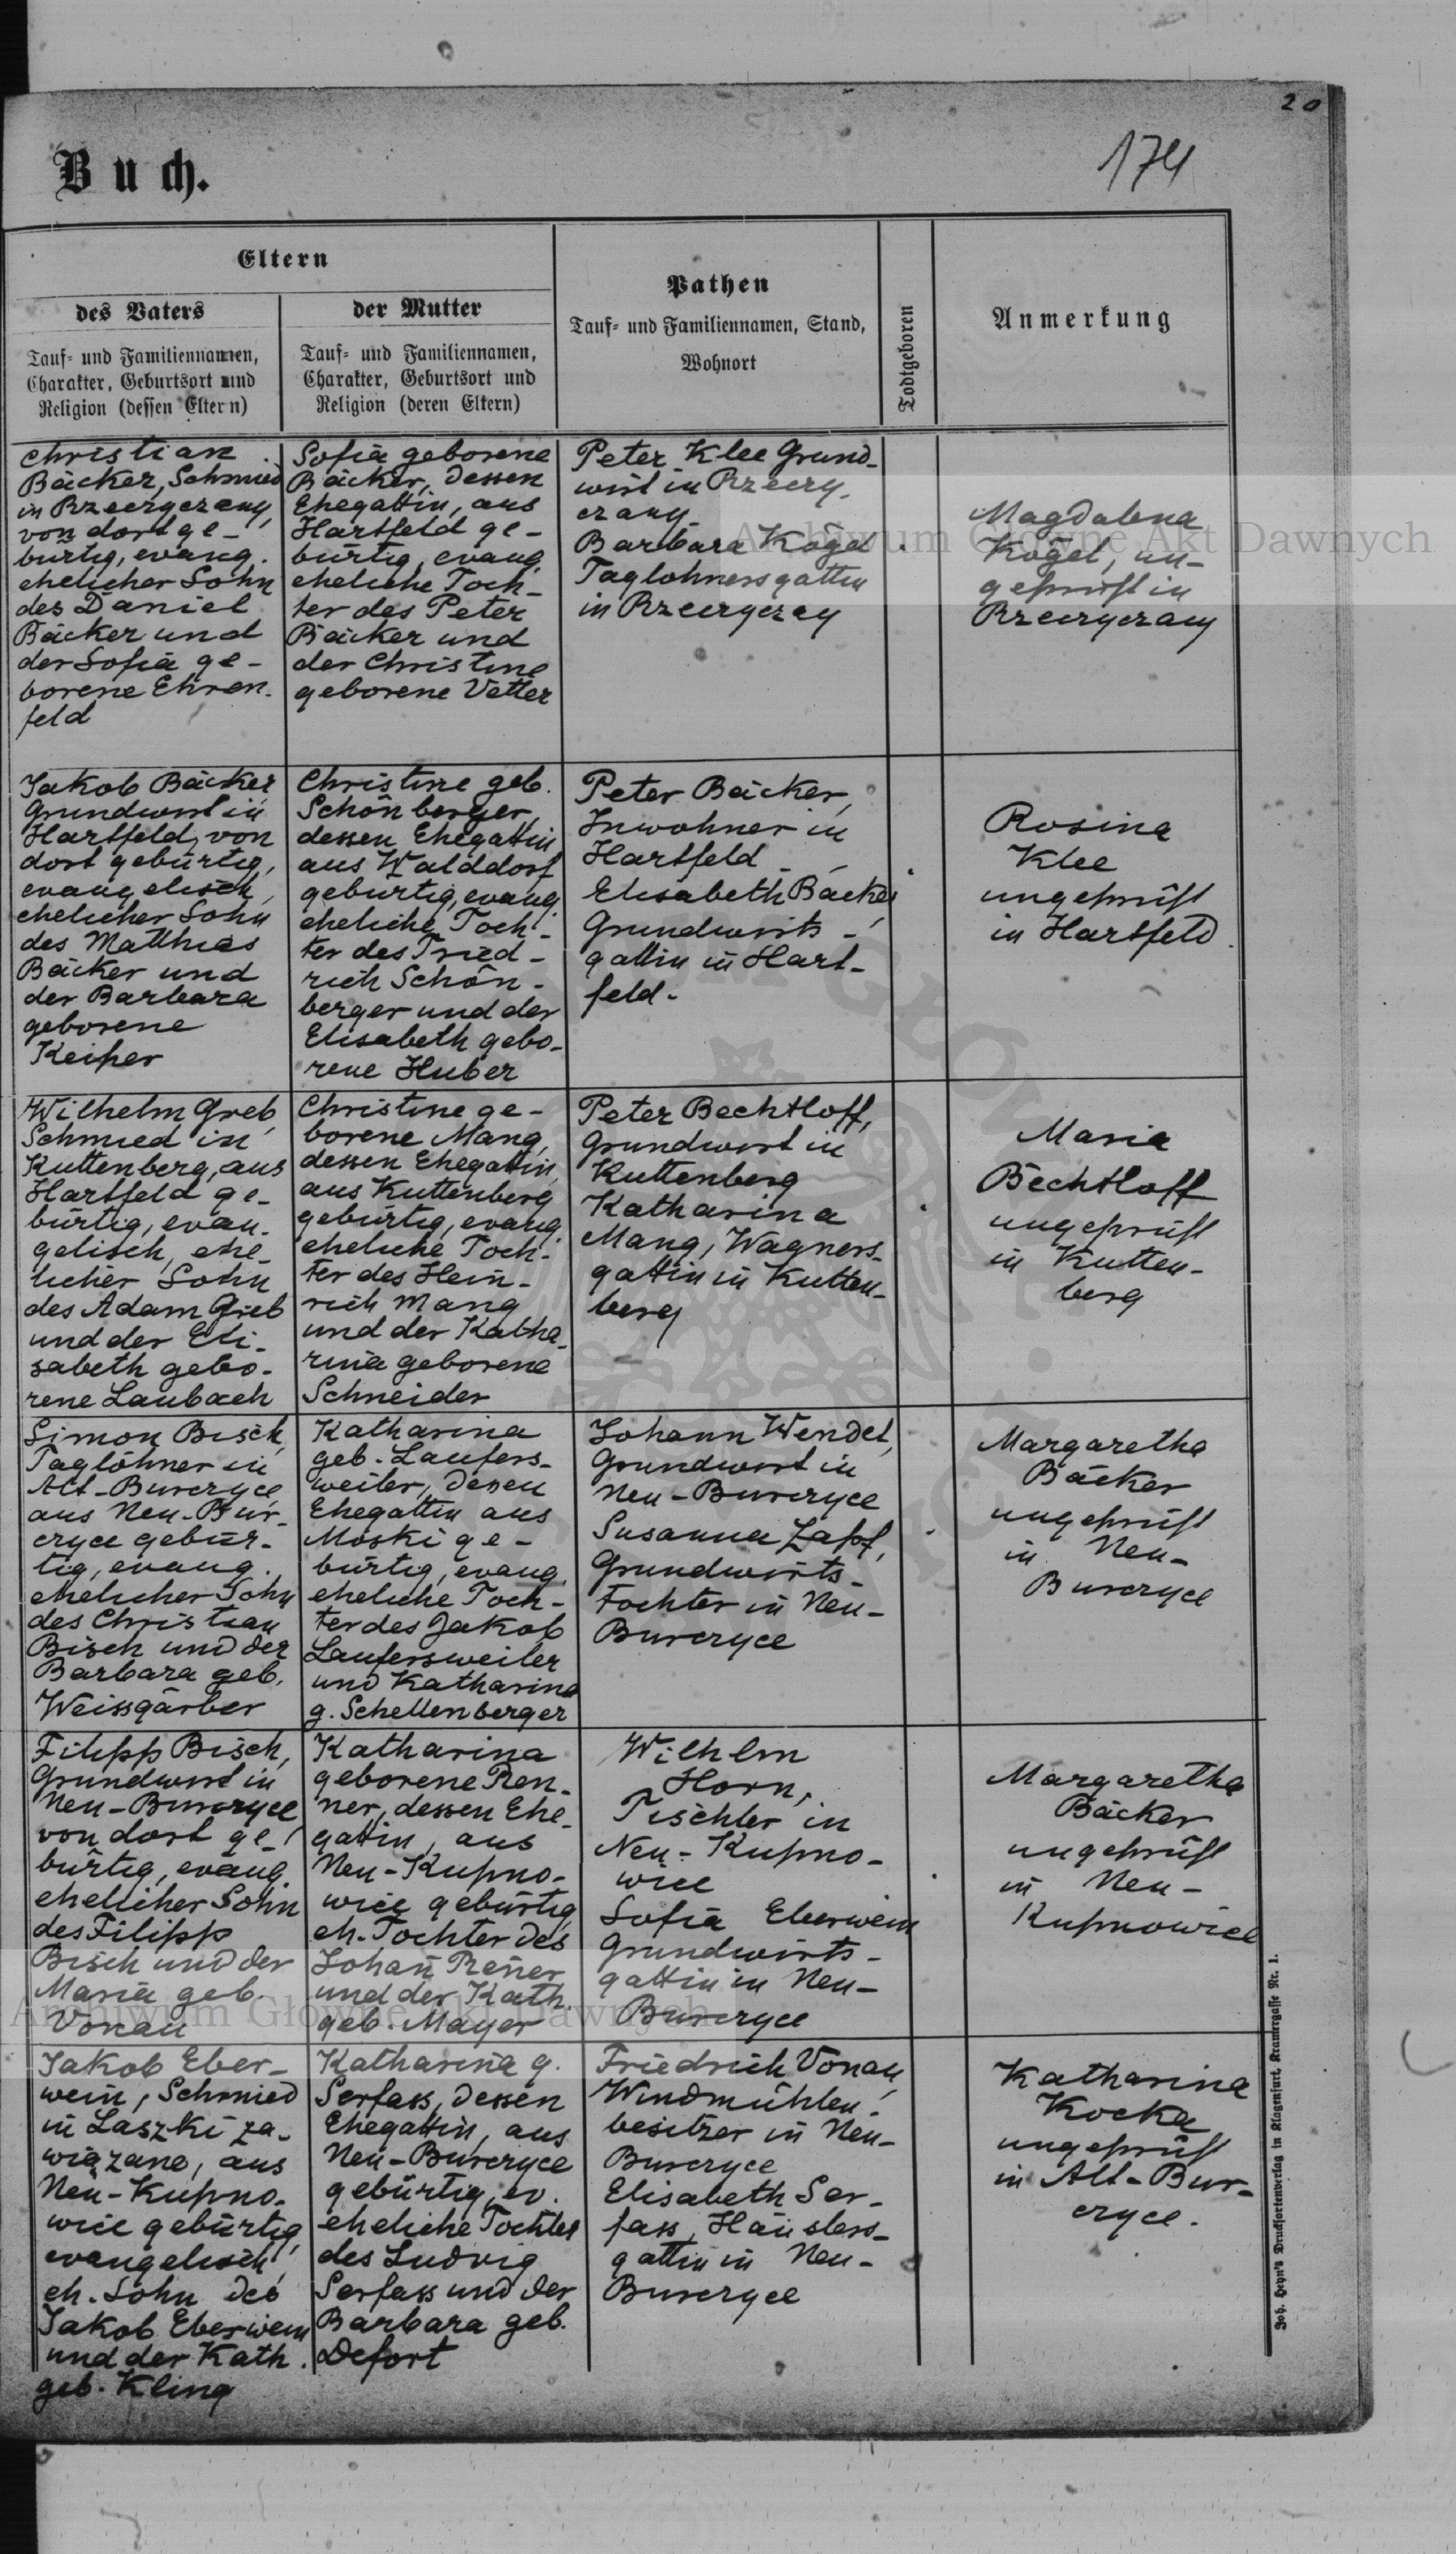 20
174
Buch.
Eltern
des Vaters
Tauf- und Familiennamen,
Charakter, Geburtsort und
Religion (dessen Eltern)
der Mutter
Tauf- und Familiennamen,
Charakter, Geburtsort und
Religion (deren Eltern)
Pathen
Tauf- und Familiennamen, Stand,
Wohnort
Todtgeboren
Anmerkung
Christian
Bäcker, Schmied
in Rzeczyczany,
von dort ge-
bürtig, evang.
ehelicher Sohn
des Daniel
Bäcker und
der Sofia ge-
borene Ehren-
feld
Sofia geborene
Bäcker, dessen
Ehegattin, aus
Hartfeld ge-
bürtig, evang.
eheliche Toch-
ter des Peter
Bäcker und
der Christine
geborene Vetter
Peter Klee Grund-
wirt in Rzeczy-
czany
Barbara Kögel
Taglöhnersgattin
in Rzeczyczany
Magdalena
Kögel, un-
geprüft in
Rzeczyczany
Jakob Bäcker
Grundwirt in
Hartfeld, von
dort gebürtig,
evangelisch,
ehelicher Sohn
des Matthias
Bäcker und
der Barbara
geborene
Keiper
Christine geb.
Schönberger,
dessen Ehegattin
aus Walddorf
gebürtig, evang.
eheliche Toch-
ter des Fried-
rich Schön-
berger und der
Elisabeth gebo-
rene Huber
Peter Bäcker,
Inwohner in
Hartfeld
Elisabeth Bäcker
Grundwirts-
gattin in Hart-
feld.
Rosina
Klee
ungeprüft
in Hartfeld.
Wilhelm Greb,
Schmied in
Kuttenberg, aus
Hartfeld ge-
bürtig, evan-
gelisch, ehe-
licher Sohn
des Adam Greb
und der Eli-
sabeth gebo-
rene Laubach
Christine ge-
borene Mang,
dessen Ehegattin,
aus Kuttenberg
gebürtig, evang.
eheliche Toch-
ter des Hein-
rich Mang
und der Katha-
rina geborene
Schneider
Peter Bechtloff,
Grundwirt in
Kuttenberg
Katharina
Mang, Wagners-
gattin in Kutten-
berg
Maria
Bechtloff
ungeprüft
in Kutten-
berg
Simon Bisch,
Taglöhner in
Alt-Burczyce,
aus Neu-Bur-
czyce gebür-
tig, evang.
ehelicher Sohn
des Christian
Bisch und der
Barbara geb.
Weissgärber
Katharina
geb. Laufers-
weiler, dessen
Ehegattin aus
Moski ge-
bürtig, evang.
eheliche Toch-
ter des Jakob
Laufersweiler
und Katharina
g. Schellenberger
Johann Wendel,
Grundwirt in
Neu-Burczyce
Susanna Zapf,
Grundwirts-
tochter in Neu-
Burczyce
Margaretha
Bäcker
ungeprüft
in Neu-
Burczyce
Filipp Bisch,
Grundwirt in
Neu-Burczyce
von dort ge-
bürtig, evang.
ehelicher Sohn
des Filipp
Bisch und der
Maria geb.
Vonau
Katharina
geborene Ren-
ner, dessen Ehe-
gattin, aus
Neu-Kupno-
wice gebürtig,
eh. Tochter des
Johañ Reñer
und der Kath.
geb. Mayer
Wilhlm
Horn,
Tischler in
Neu-Kupno-
wice
Sofia Eberwein
Grundwirts-
gattin in Neu-
Burczyce
Margaretha
Bäcker
ungeprüft
in Neu-
Kupnowice
Jakob Eber-
wein, Schmied
in Laszki za-
wiązane, aus
Neu-Kupno-
wice gebürtig,
evangelisch,
eh. Sohn des
Jakob Eberwein
und der Kath.
geb. Kling
Katharina g.
Serfass, dessen
Ehegattin, aus
Neu-Burczyce
gebürtig, ev.
eheliche Tochter
des Ludwig
Serfass und der
Barbara geb.
Defort
Friedrich Vonau,
Windmühlen-
besitzer in Neu-
Burczyce
Elisabeth Ser-
fass, Häuslers-
gattin in Neu-
Burczyce
Katharina
Kocka
ungeprüft
in Alt-Bur-
czyce.
Joh. Heyn's Drucksortenverlag in Klagenfurt, Kramergasse Nr. 1.
Archiwum Główne Akt Dawnych
Archiwum Główne Akt Dawnych